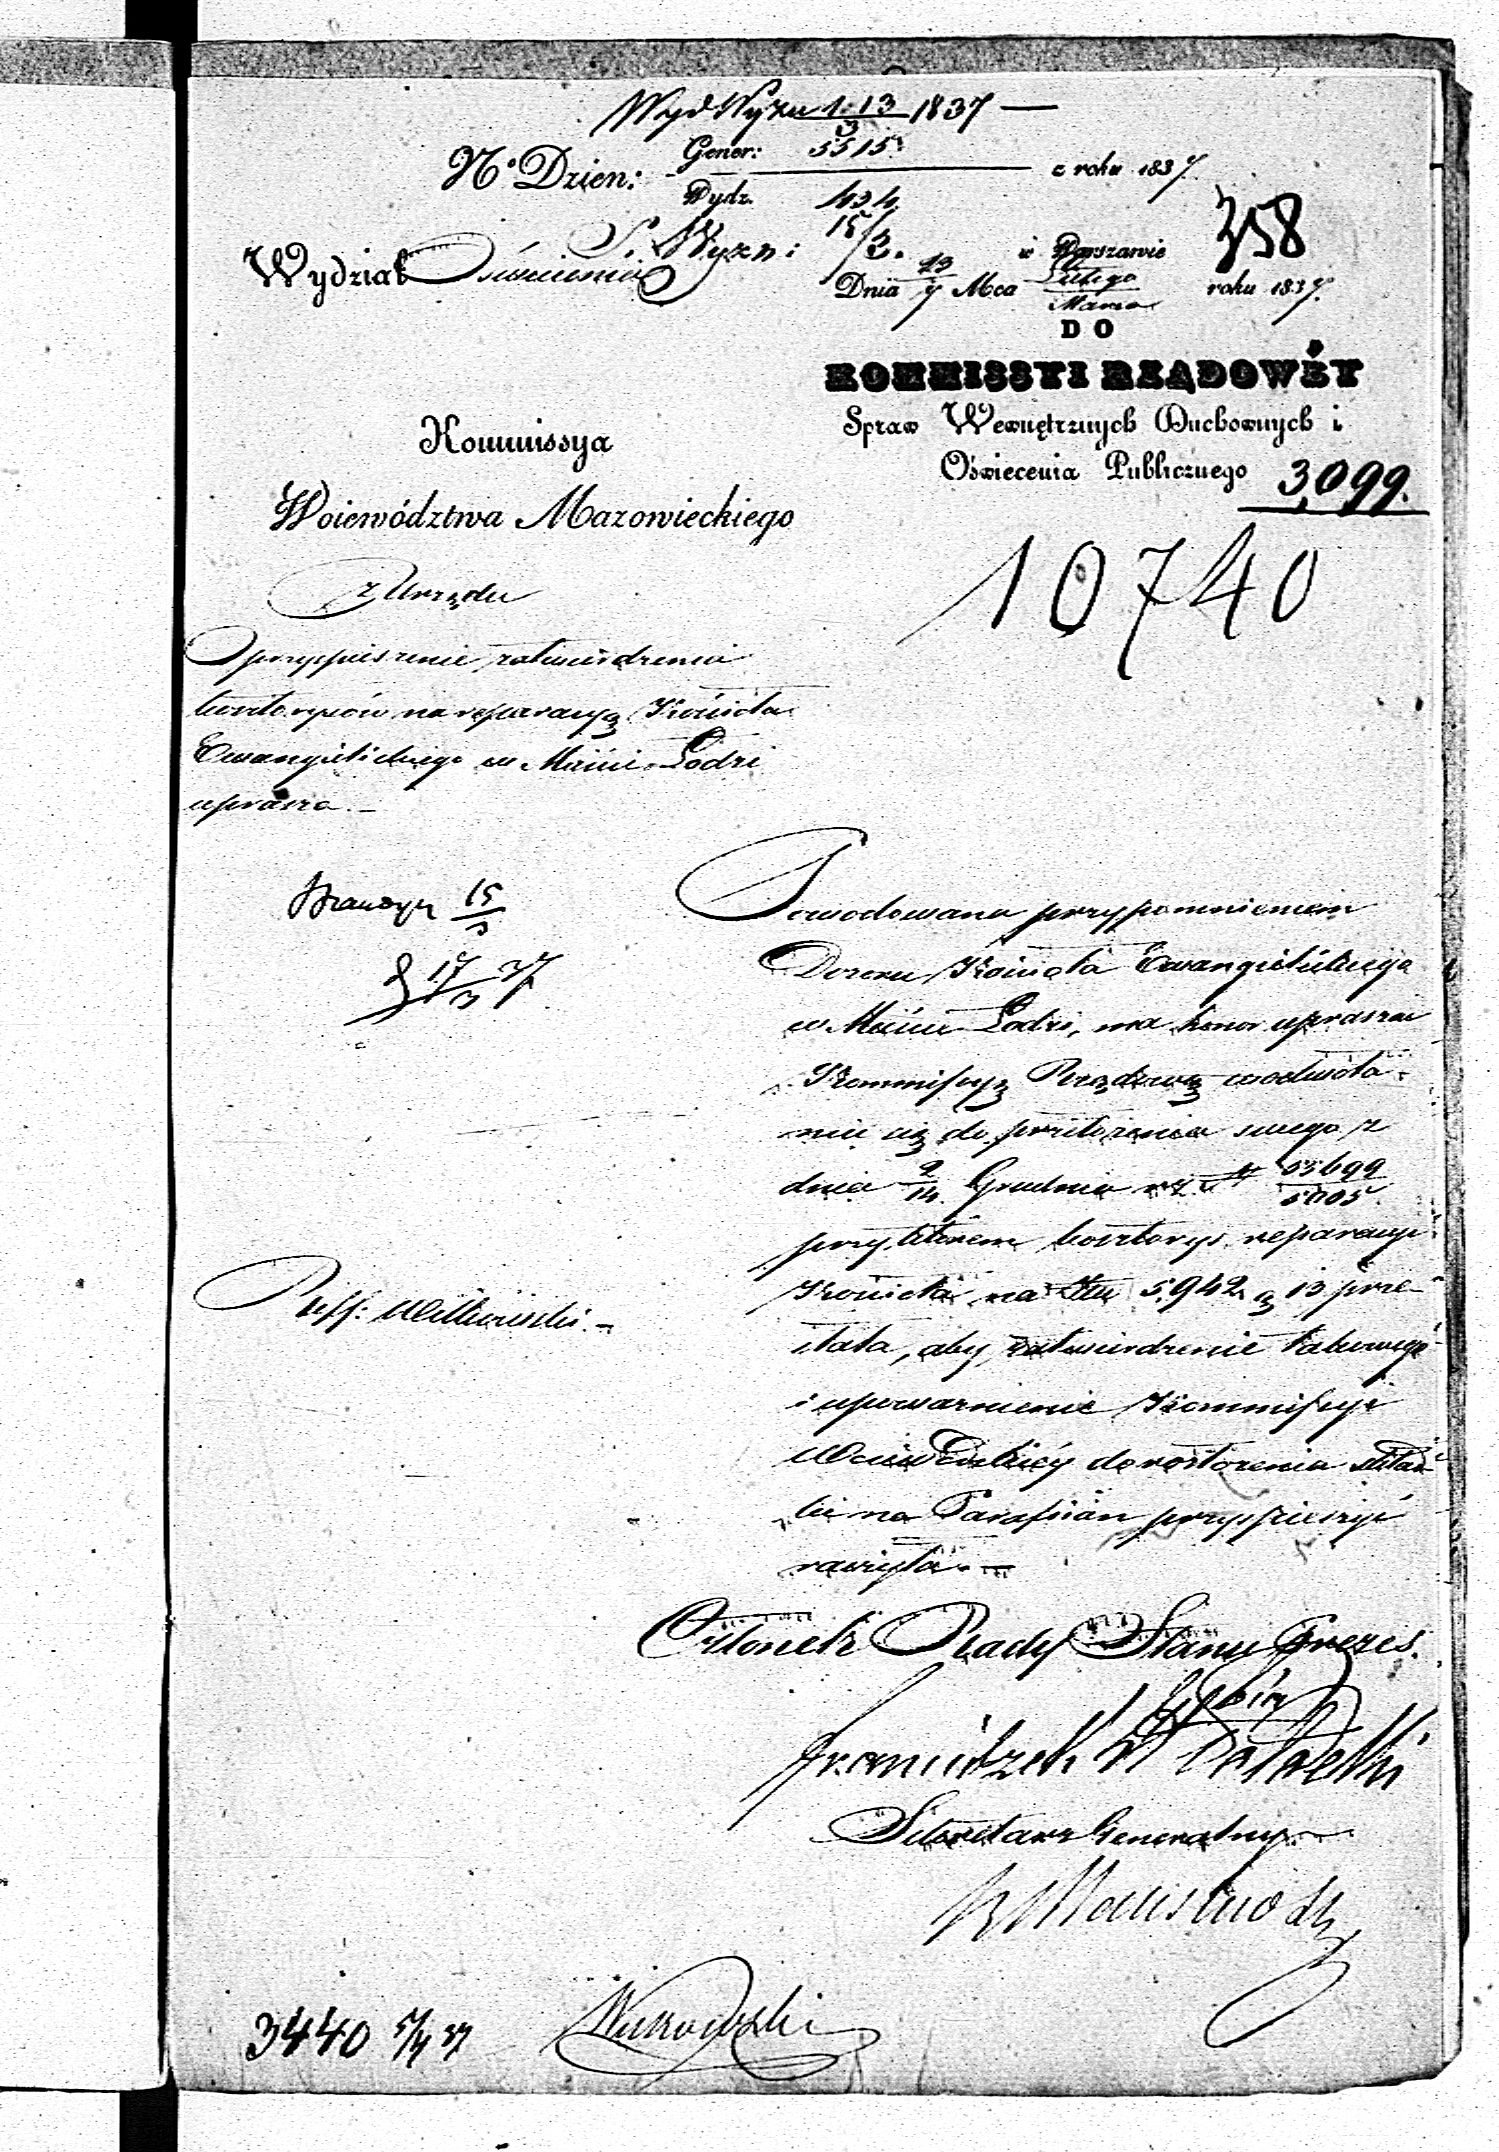 Wyd Wyzn 1. 13/3 1837 —
Gener: 5515.
N° Dzien: z roku 1837.
Wydz. 434
358
S. Wyzn: 15/3.
w Warszawie
Wydział Oświecenia
Dnia 23/7 Mca Lutego/Marca roku 1837.
DO
KOMMISSYI RZĄDOWÉY
Spraw Wewnętrznych Duchownych i
Oświecenia Publicznego
3,099.
Kommissya
Województwa Mazowieckiego
10740
z Urzędu
O przyspieszenie zatwierdzenia
kosztorysów na reparacyą Kościoła
Ewangielickiego w Mieście Łodzi
uprasza. —
15/3
17/3 37
Powodowana przypomnieniem
Dozoru Kościoła Ewangielickiego
w Mieście Łodzi, ma honor upraszać
Kommissyą Rządową w odwoła-
niu się do przełożenia swego z
dnia 2/14 Grudnia r. z. N 55699/5005
przy którem kosztorys reparacyi
Kościoła na Złtu 5,942 g 13 prze-
słała, aby zatwierdzenie takowego
i upoważnienie Kommissyi
Wojewódzkiéy do rozłożenia skład-
ki na Parafian przyspieszyć
raczyła. —
Reff: Witkowski. —
Członek Rady Stanu Prezes.
Franciszek
Sekretarz Generalny
3440 5/4 37